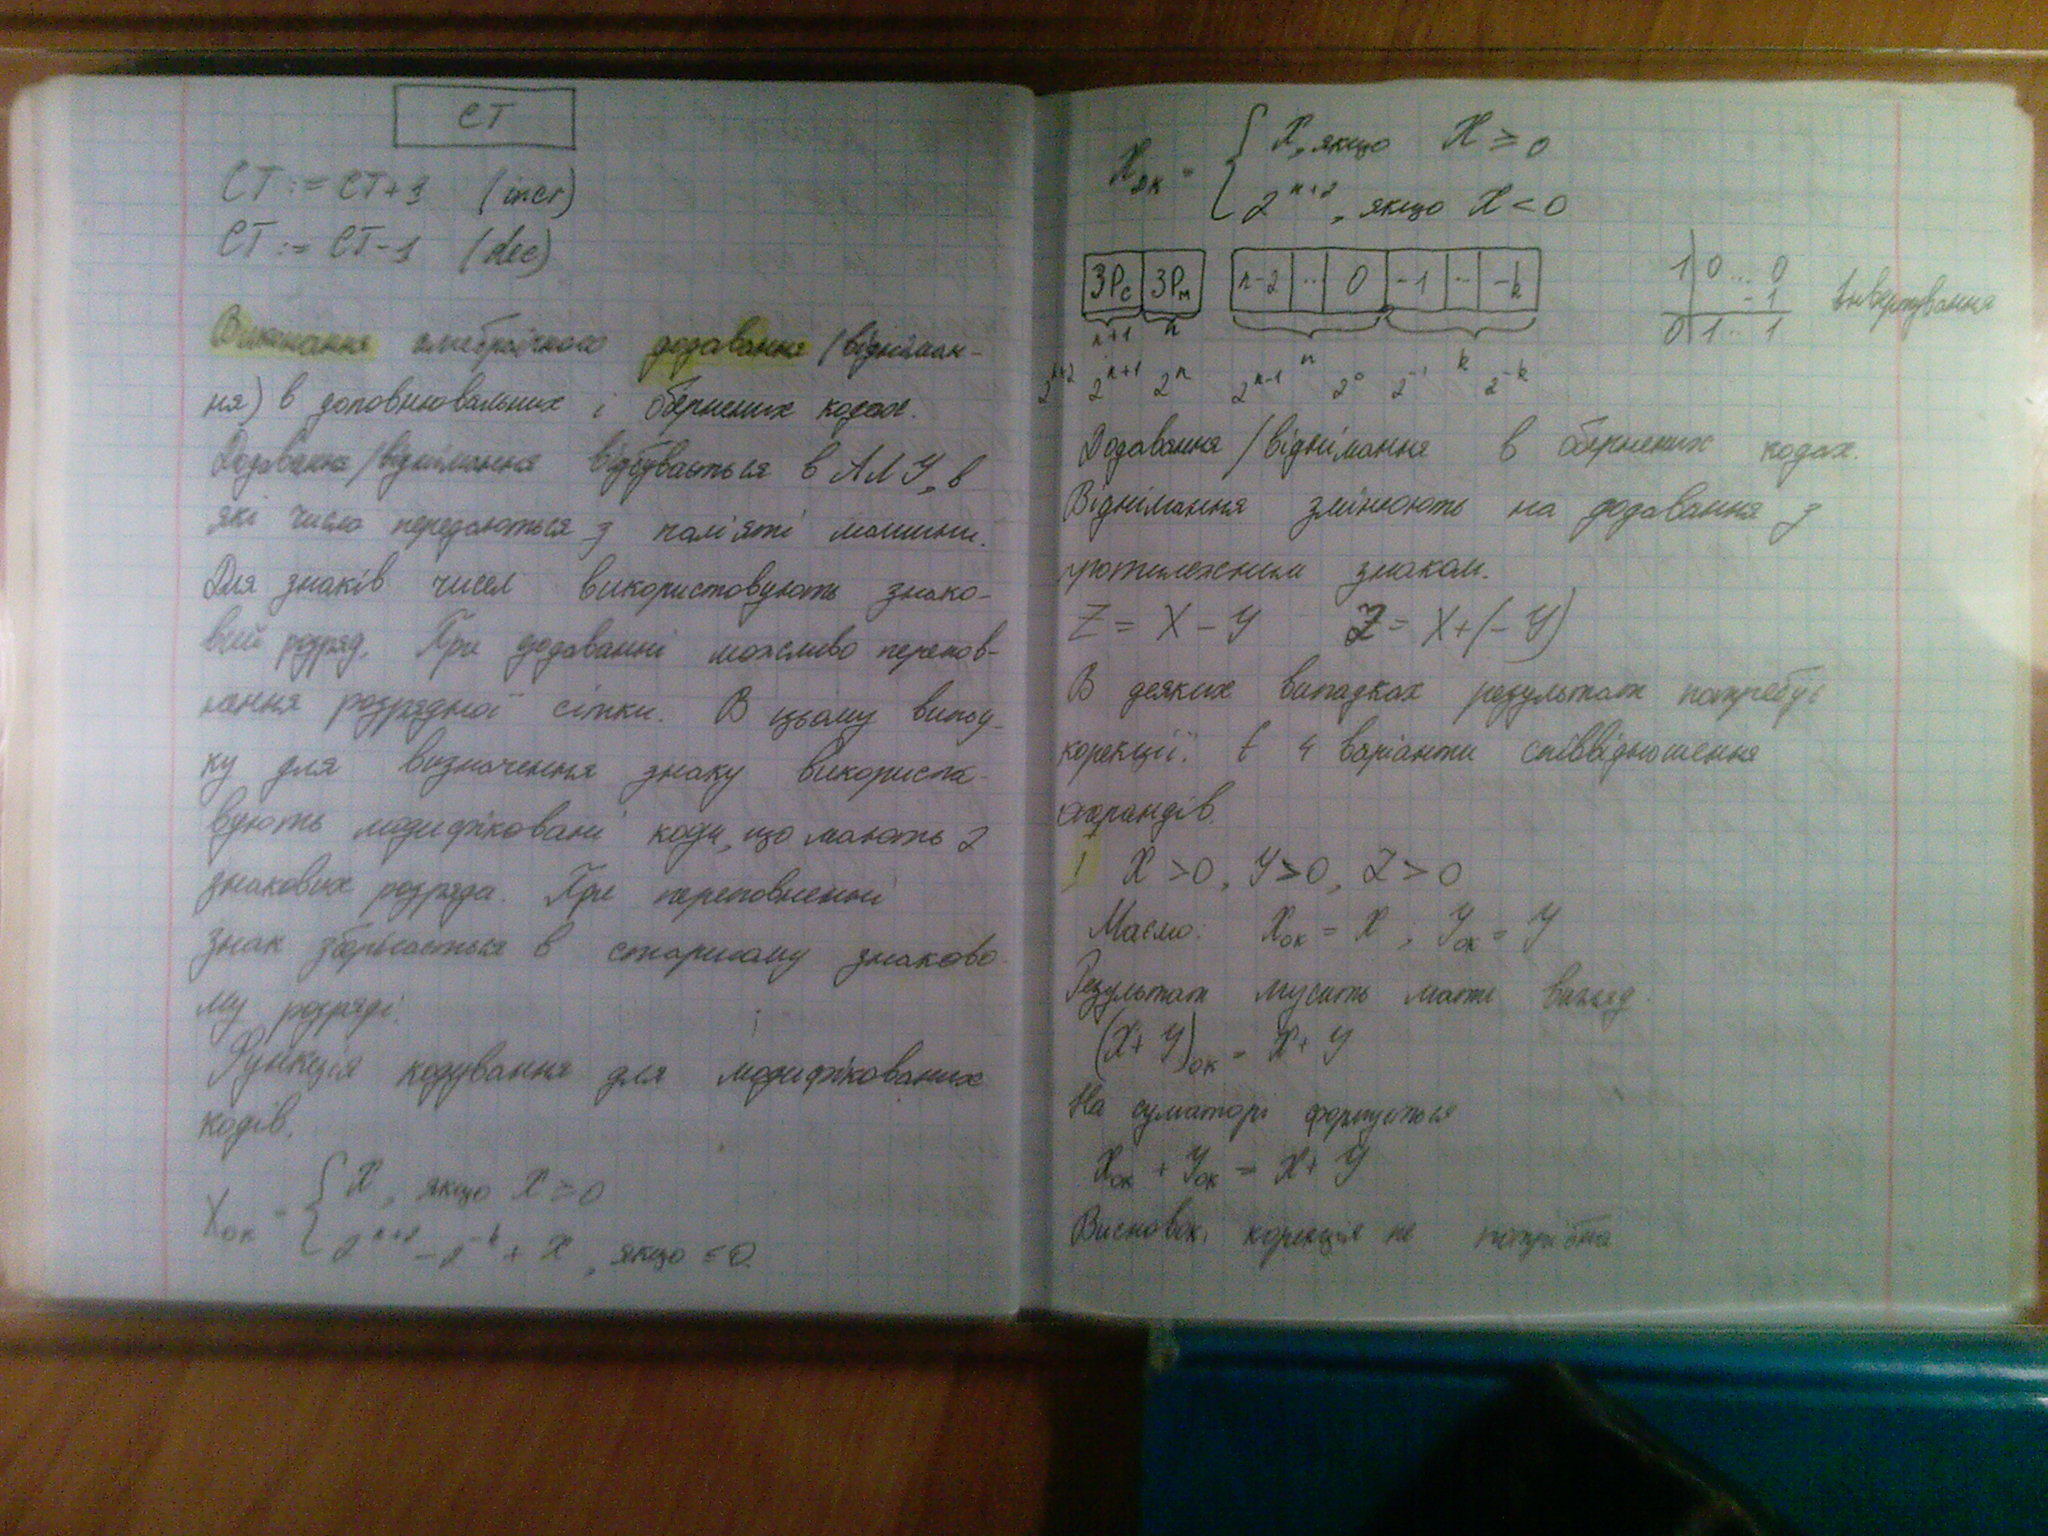 СТ
СТ := СТ+1 (incr)
СТ := СТ-1 (dec)
Виконання алгебраїчного додавання (віднiман-
ня) в доповнювальних і обернених кодах.
Додавання/віднiмання відбувається в АЛУ, в
які числа передаються з пам'яті машини.
Для знаків чисел використовують знако-
вий розряд. При додаванні можливо перепов-
нення розрядної сітки. В цьому випад-
ку для визначення знаку використо-
вують модифіковані коди, що мають 2
знакових розряда. При переповненні
знак зберігається в старшому знаково-
му розряді.
Функція кодування для модифікованих
кодів.
Xок = { X, якщо X ≥ 0
2^(n+2) - 2^(-k) + X, якщо ≤ 0
Xдк = { X, якщо X ≥ 0
2^(n+2), якщо X < 0
ЗРс ЗРм n-2 ... 0 -1 ... -k
n+1 n n k
2^(n+2) 2^(n+1) 2^n 2^(n-1) 2^0 2^(-1) 2^(-k)
1 0 ... 0
-1
0 1 ... 1
інвертування
Додавання/віднiмання в обернених кодах.
Віднiмання змінюють на додавання з
протилежним знаком.
Z = X - Y Z = X + (- Y)
В деяких випадках результат потребує
корекції. Є 4 варіанти співвідношення
операндів.
1 X > 0, Y > 0, Z > 0
Маємо: Xок = X ; Yок = Y
Результат мусить мати вигляд.
(X + Y)ок = X + Y
На суматорі формується
Xок + Yок = X + Y
Висновок: корекція не потрібна